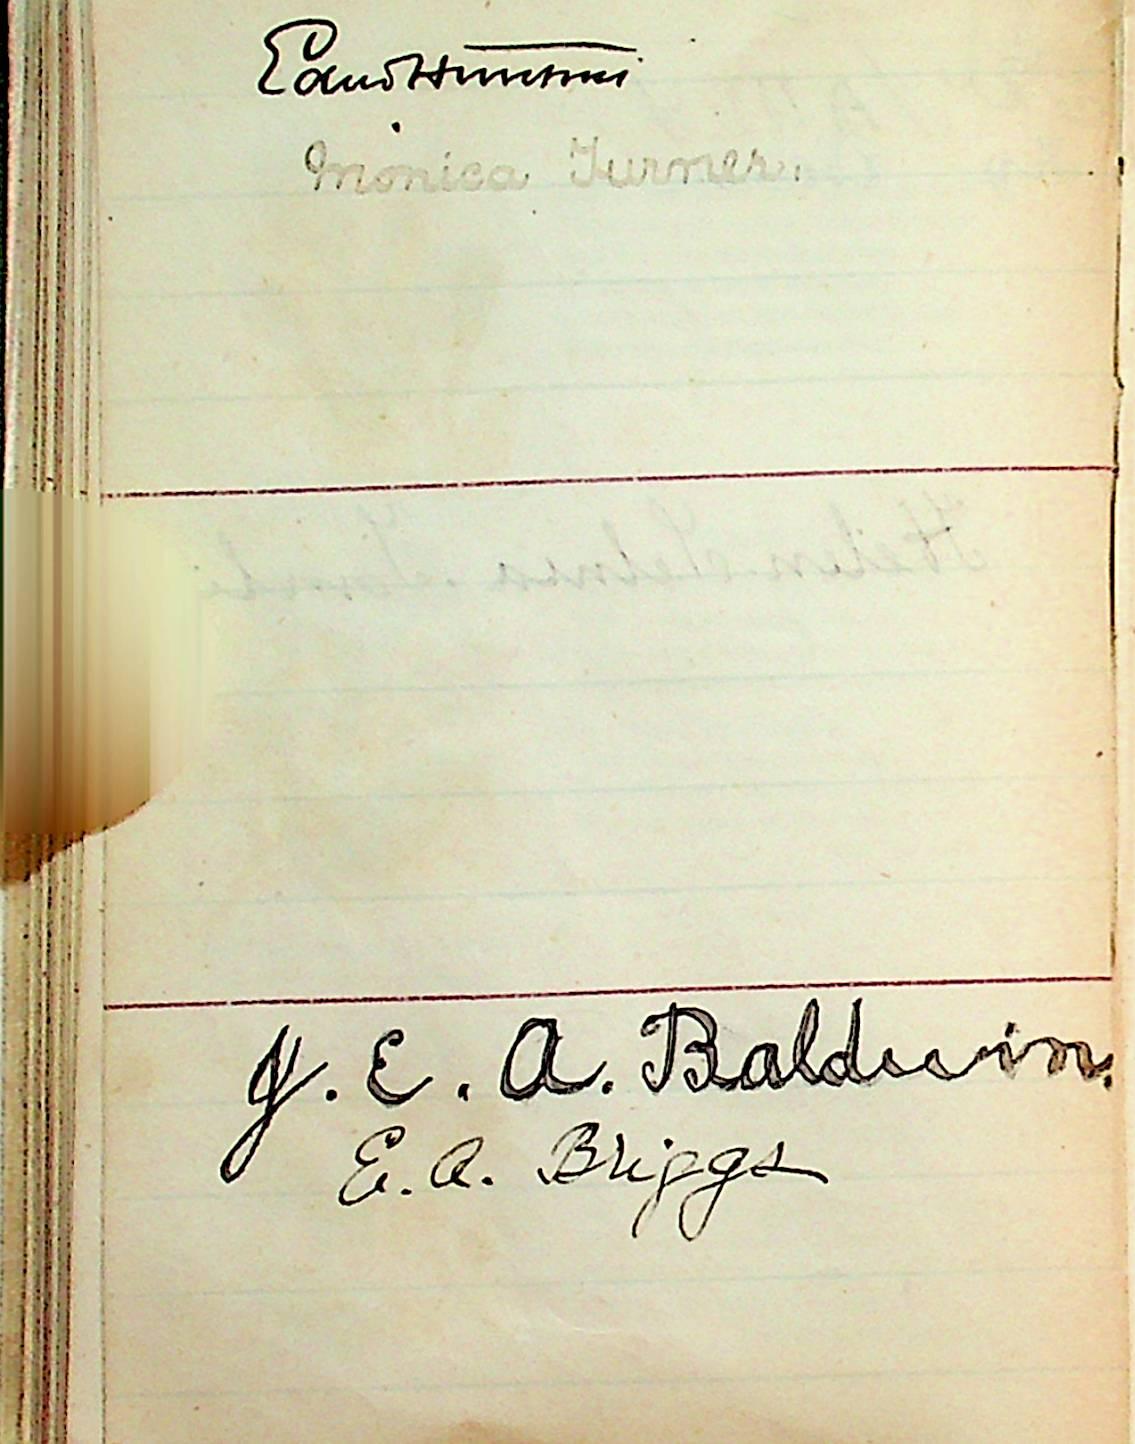 Monica Turner.
J. E. A. Baldwin.
E. A. Briggs